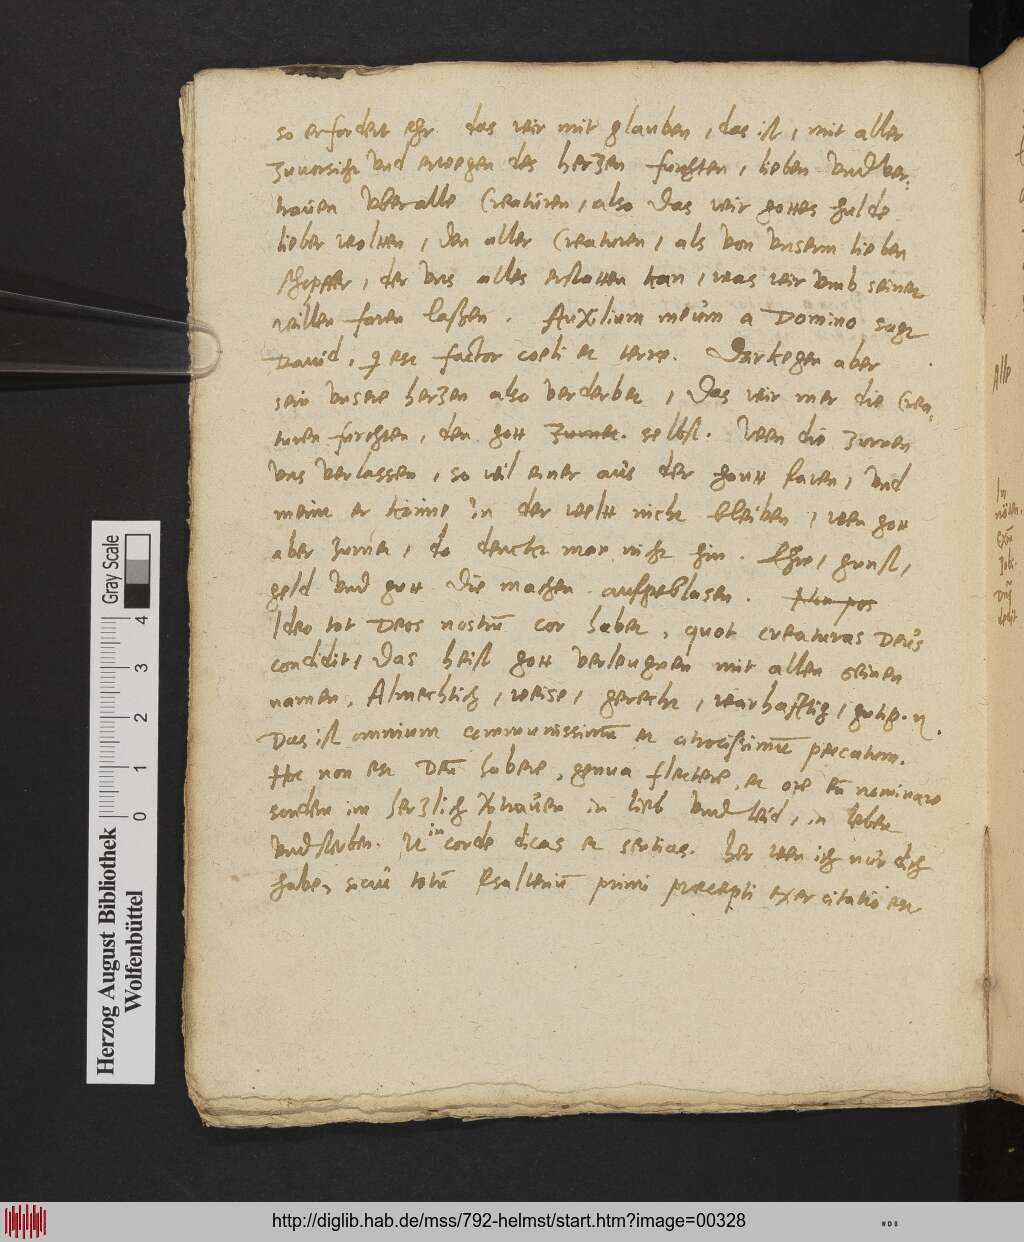 so erfordert ehr das wir mit glauben, das ist, mit aller
zuuorsicht und erwegen des herzen forchten, lieben und ver-
trauen uber alle Creaturen, also das wir gottes hulde
lieber wolten, den aller Creaturen, als von unserm lieben
schepffer, der uns alles erstatten kan, was wir umb seinet
willen faren laßen. Auxilium meum a Domino sagt
David, q est factor coeli et terre. Darkegen aber
sein unsere herzen also verderbet, das wir mer die Crea-
turen forchten, den gott selbst. Wen die zurnen
uns verlassen, so wil einer aus der hautt faren, und
meint er konne in der weltt nicht bleiben, wen gott
aber zurnet, do denckt man nicht hin. Ehre, gunst,
geld und gutt die machen aufgeblasen.
Ideo tot Deos nostrum cor habet, quot creaturas Deus
condidit, Das heist gott verleugnen mit allen seinen
namen, Almechtich, weise, gerecht, warhafftig, gutig.
Das ist omnium communissimum et atrocissimum peccatum.
Hoc non est Deum habere, genua flectere, et ore eum nominare
sondern im herzlich vertrauen in lieb und leid, in leben
und sterben. Ut in corde dicas et sentias. her wen ich nur dich
habe, sicut totum Psalterium primi praecepti exercitatio est
Alle
In
Herzog August Bibliothek
Wolfenbüttel
Gray Scale
0 1 2 3 4
http://diglib.hab.de/mss/792-helmst/start.htm?image=00328